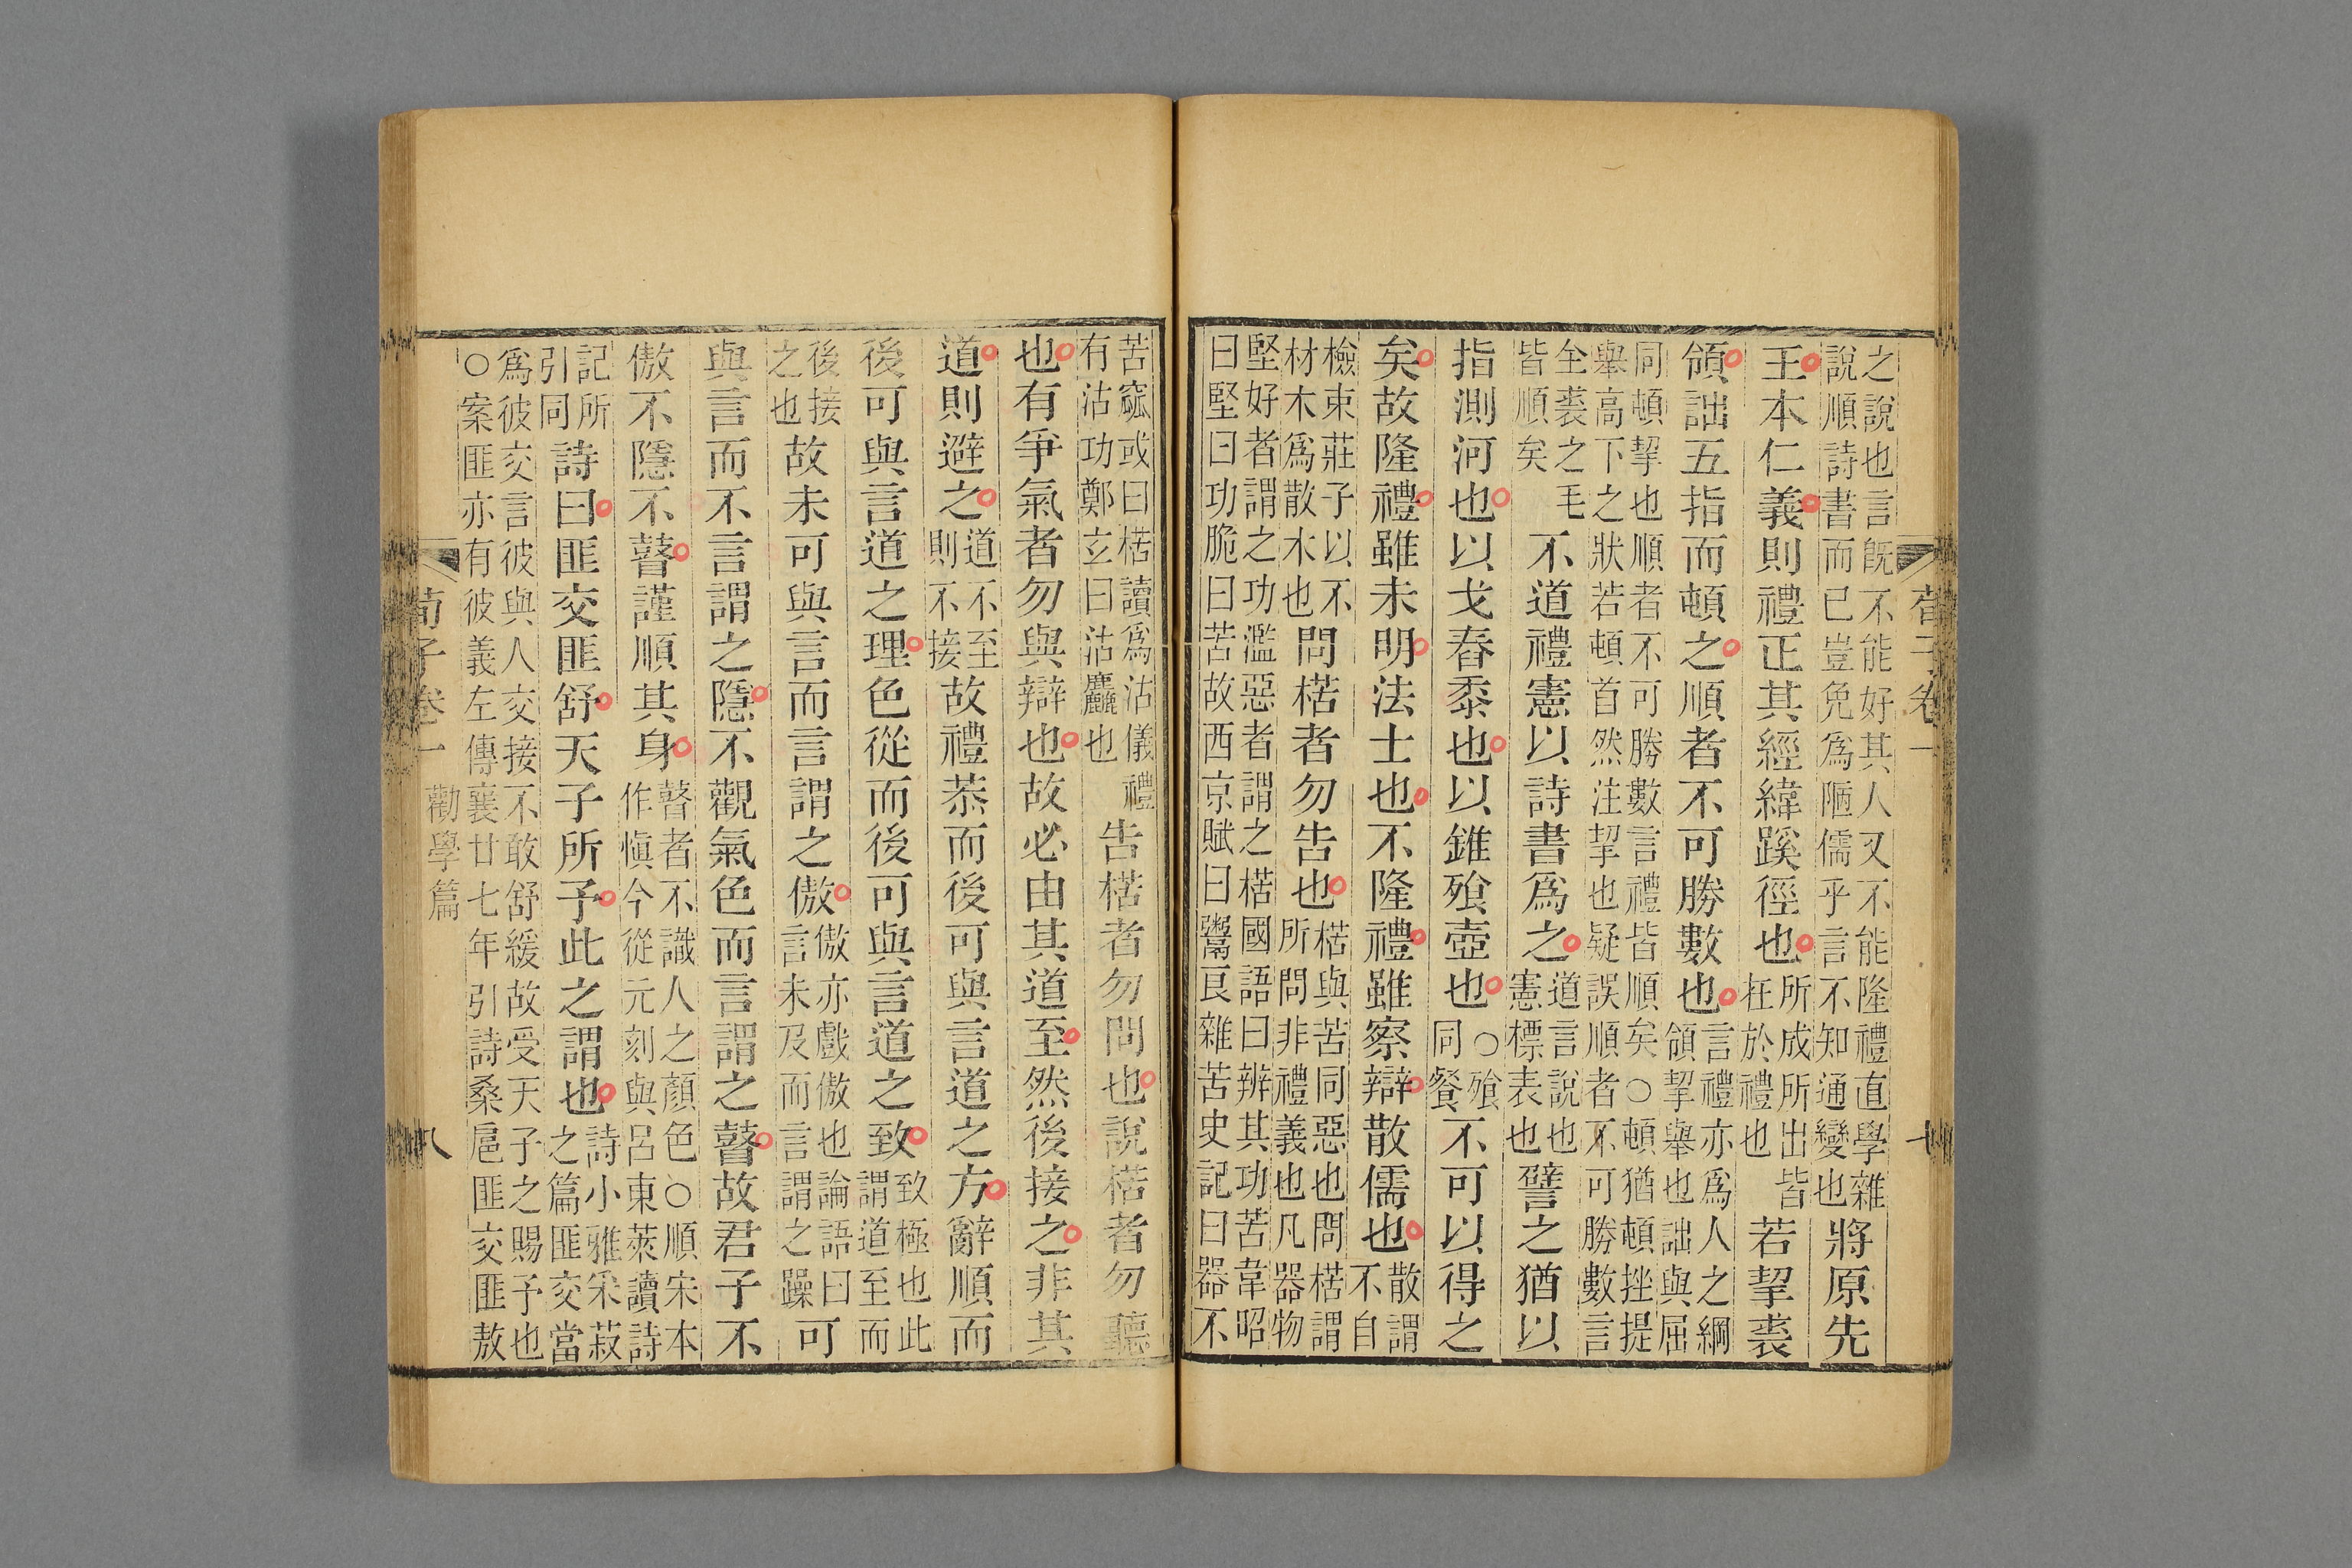 荀子卷一 七
之說也言旣不能好其人又不能隆禮直學雜說順詩書而已豈免爲陋儒乎言不知通變也將原先
王本仁義則禮正其經緯蹊徑也所成所出皆枉於禮也若挈裘
領詘五指而頓之順者不可勝數也言禮亦爲人之綱領挈舉也詘與屈
同頓挈也順者不可勝數言禮皆順矣○頓猶頓挫提舉高下之狀若頓首然注挈也疑誤順者不可勝數言
全裘之毛皆順矣不道禮憲以詩書爲之道言說也憲標表也譬之猶以
指測河也以戈舂黍也以錐飱壺也○飱同餐不可以得之
矣故隆禮雖未明法士也不隆禮雖察辯散儒也散謂不自
檢束莊子以不材木爲散木也問楛者勿告也楛與苦同惡也問楛謂所問非禮義也凡器物
堅好者謂之功濫惡者謂之楛國語曰辨其功苦韋昭曰堅曰功脆曰苦故西京賦曰鬻良雜苦史記曰器不
苦窳或曰楛讀爲沽儀禮有沽功鄭玄曰沽麤也告楛者勿問也說楛者勿聽
也有爭氣者勿與辯也故必由其道至然後接之非其
道則避之道不至則不接故禮恭而後可與言道之方辭順而
後可與言道之理色從而後可與言道之致致極也此謂道至而
後接之也故未可與言而言謂之傲傲亦戲傲也論語曰言未及而言謂之躁可
與言而不言謂之隱不觀氣色而言謂之瞽故君子不
傲不隱不瞽謹順其身瞽者不識人之顏色○順宋本作愼今從元刻與呂東萊讀詩
記所引同詩曰匪交匪舒天子所予此之謂也詩小雅采菽之篇匪交當
爲彼交言彼與人交接不敢舒緩故受天子之賜予也○案匪亦有彼義左傳襄廿七年引詩桑扈匪交匪敖
荀子卷一 勸學篇 八